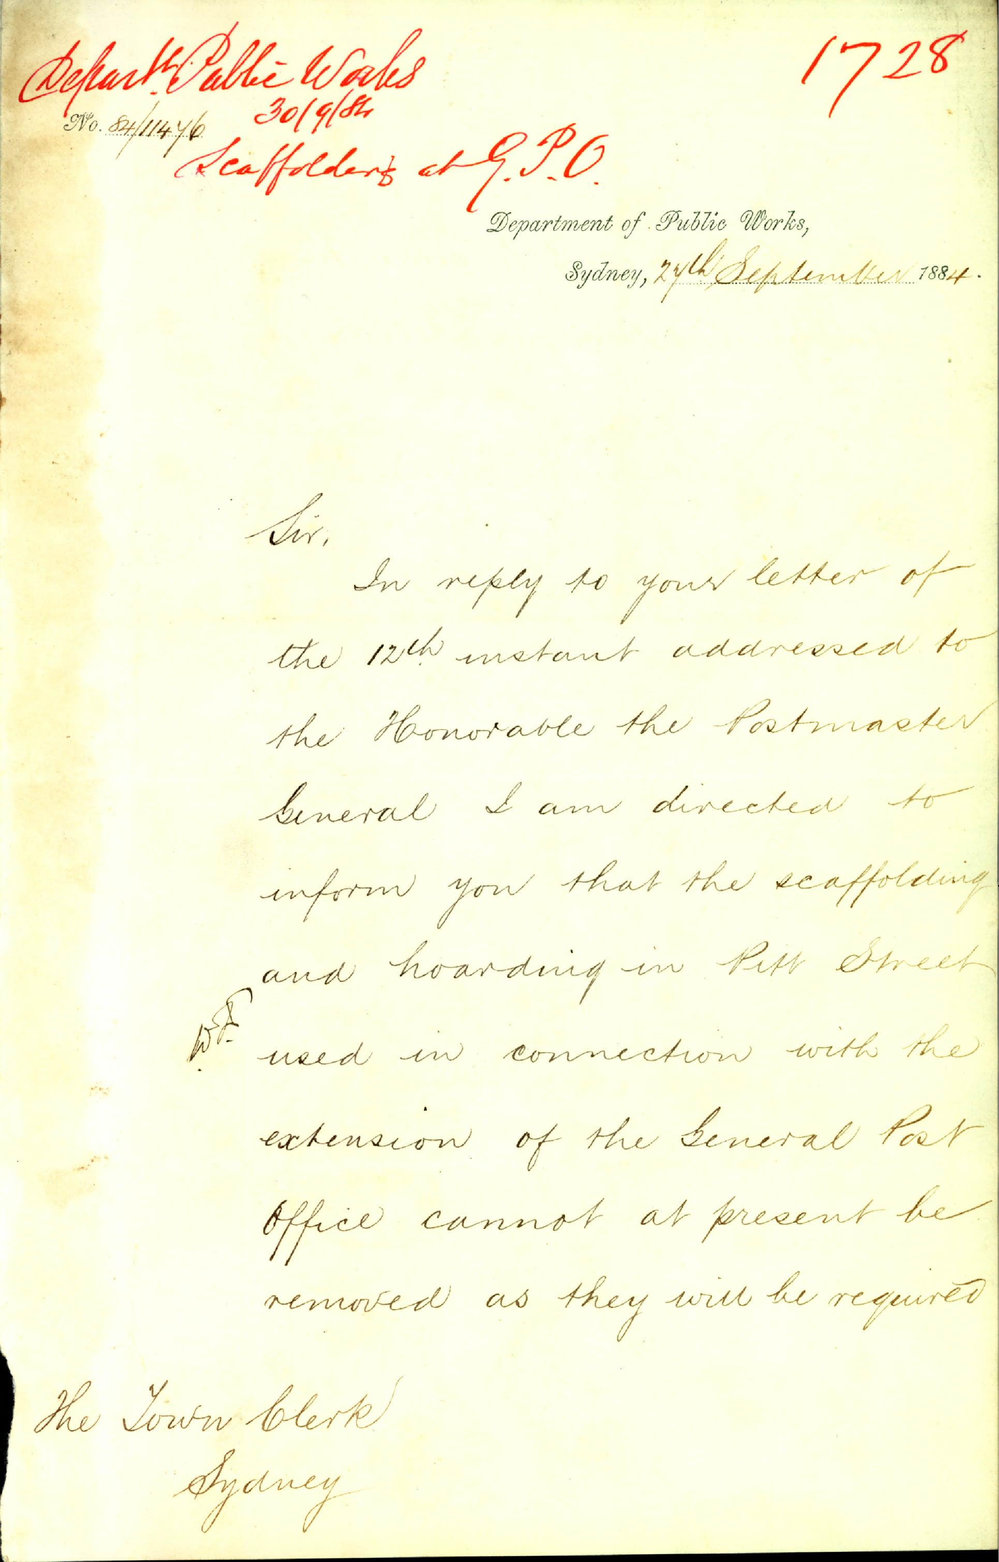 Departt. Public Works
1728
30/9/84
No. 84/11476
Scaffolders at G.P.O.
Department of Public Works,
Sydney, 27th September 1884.
Sir,
In reply to your letter of
the 12th instant addressed to
the Honorable the Postmaster
General I am directed to
inform you that the scaffolding
and hoarding in Pitt Street
used in connection with the
extension of the General Post
Office cannot at present be
removed as they will be required
The Town Clerk
Sydney